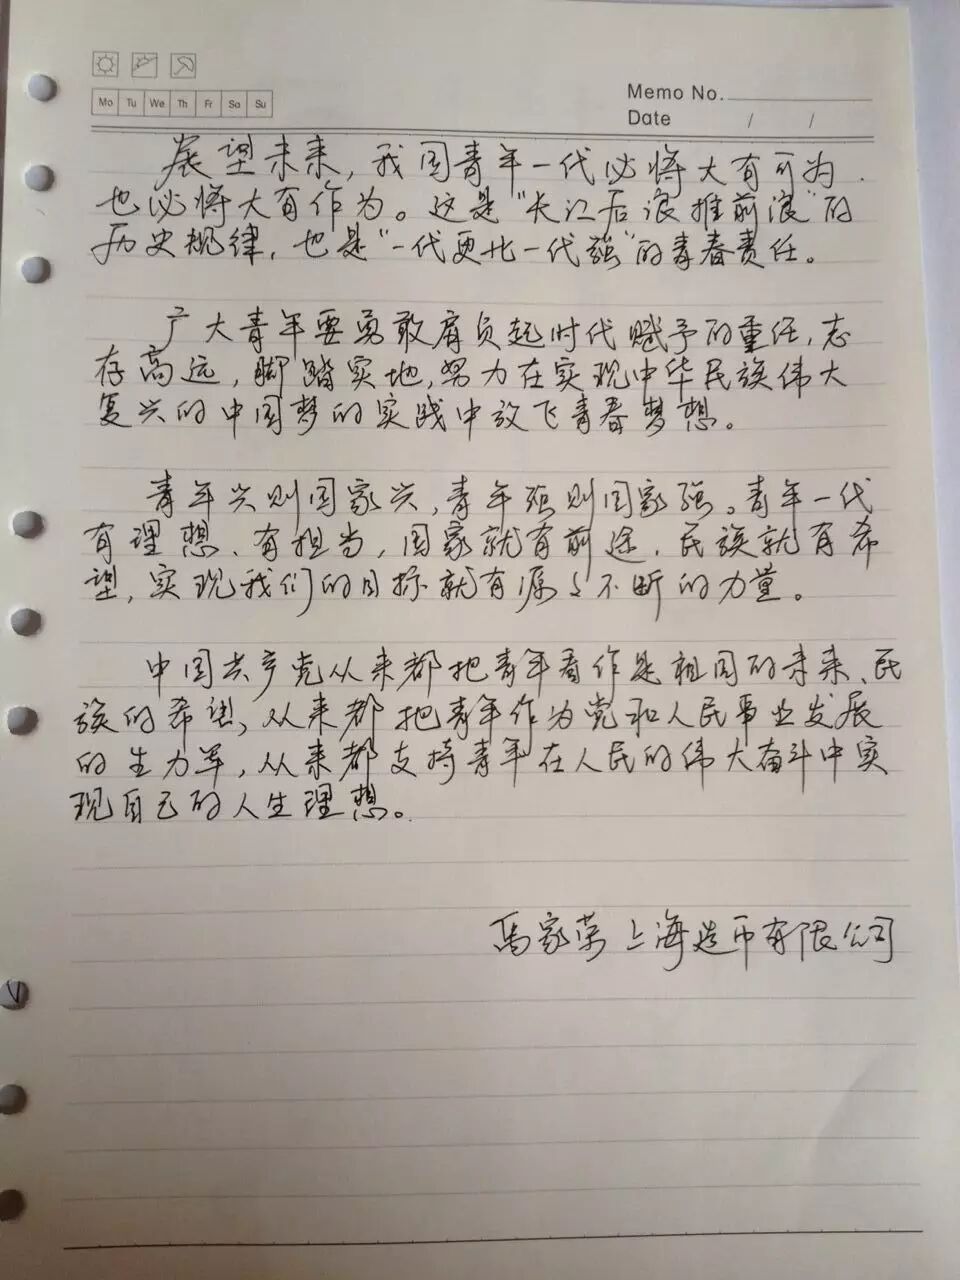 Mo Tu We Th Fr Sa Su
Memo No.
Date / /
展望未来，我国青年一代必将大有可为，
也必将大有作为。这是“长江后浪推前浪”的
历史规律，也是“一代更比一代强”的青春责任。
广大青年要勇敢肩负起时代赋予的重任，志
存高远，脚踏实地，努力在实现中华民族伟大
复兴的中国梦的实践中放飞青春梦想。
青年兴则国家兴，青年强则国家强。青年一代
有理想、有担当，国家就有前途，民族就有希
望，实现我们的目标就有源々不断的力量。
中国共产党从来都把青年看作是祖国的未来、民
族的希望，从来都把青年作为党和人民事业发展
的生力军，从来都支持青年在人民的伟大奋斗中实
现自己的人生理想。
馬家荣 上海造币有限公司